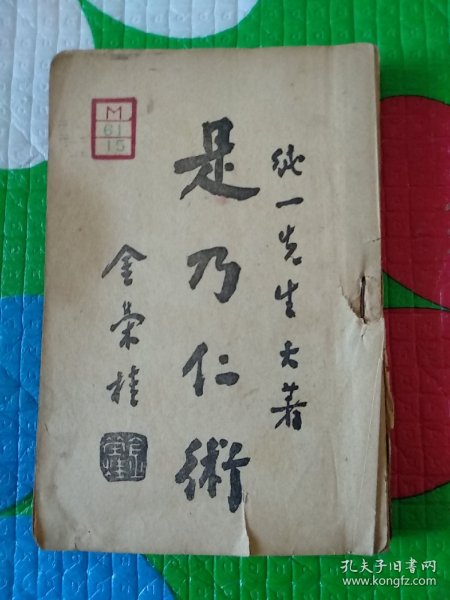 M
61
15
純一先生大著
是乃仁術
金榮桂
孔夫子旧书网
www.kongfz.com